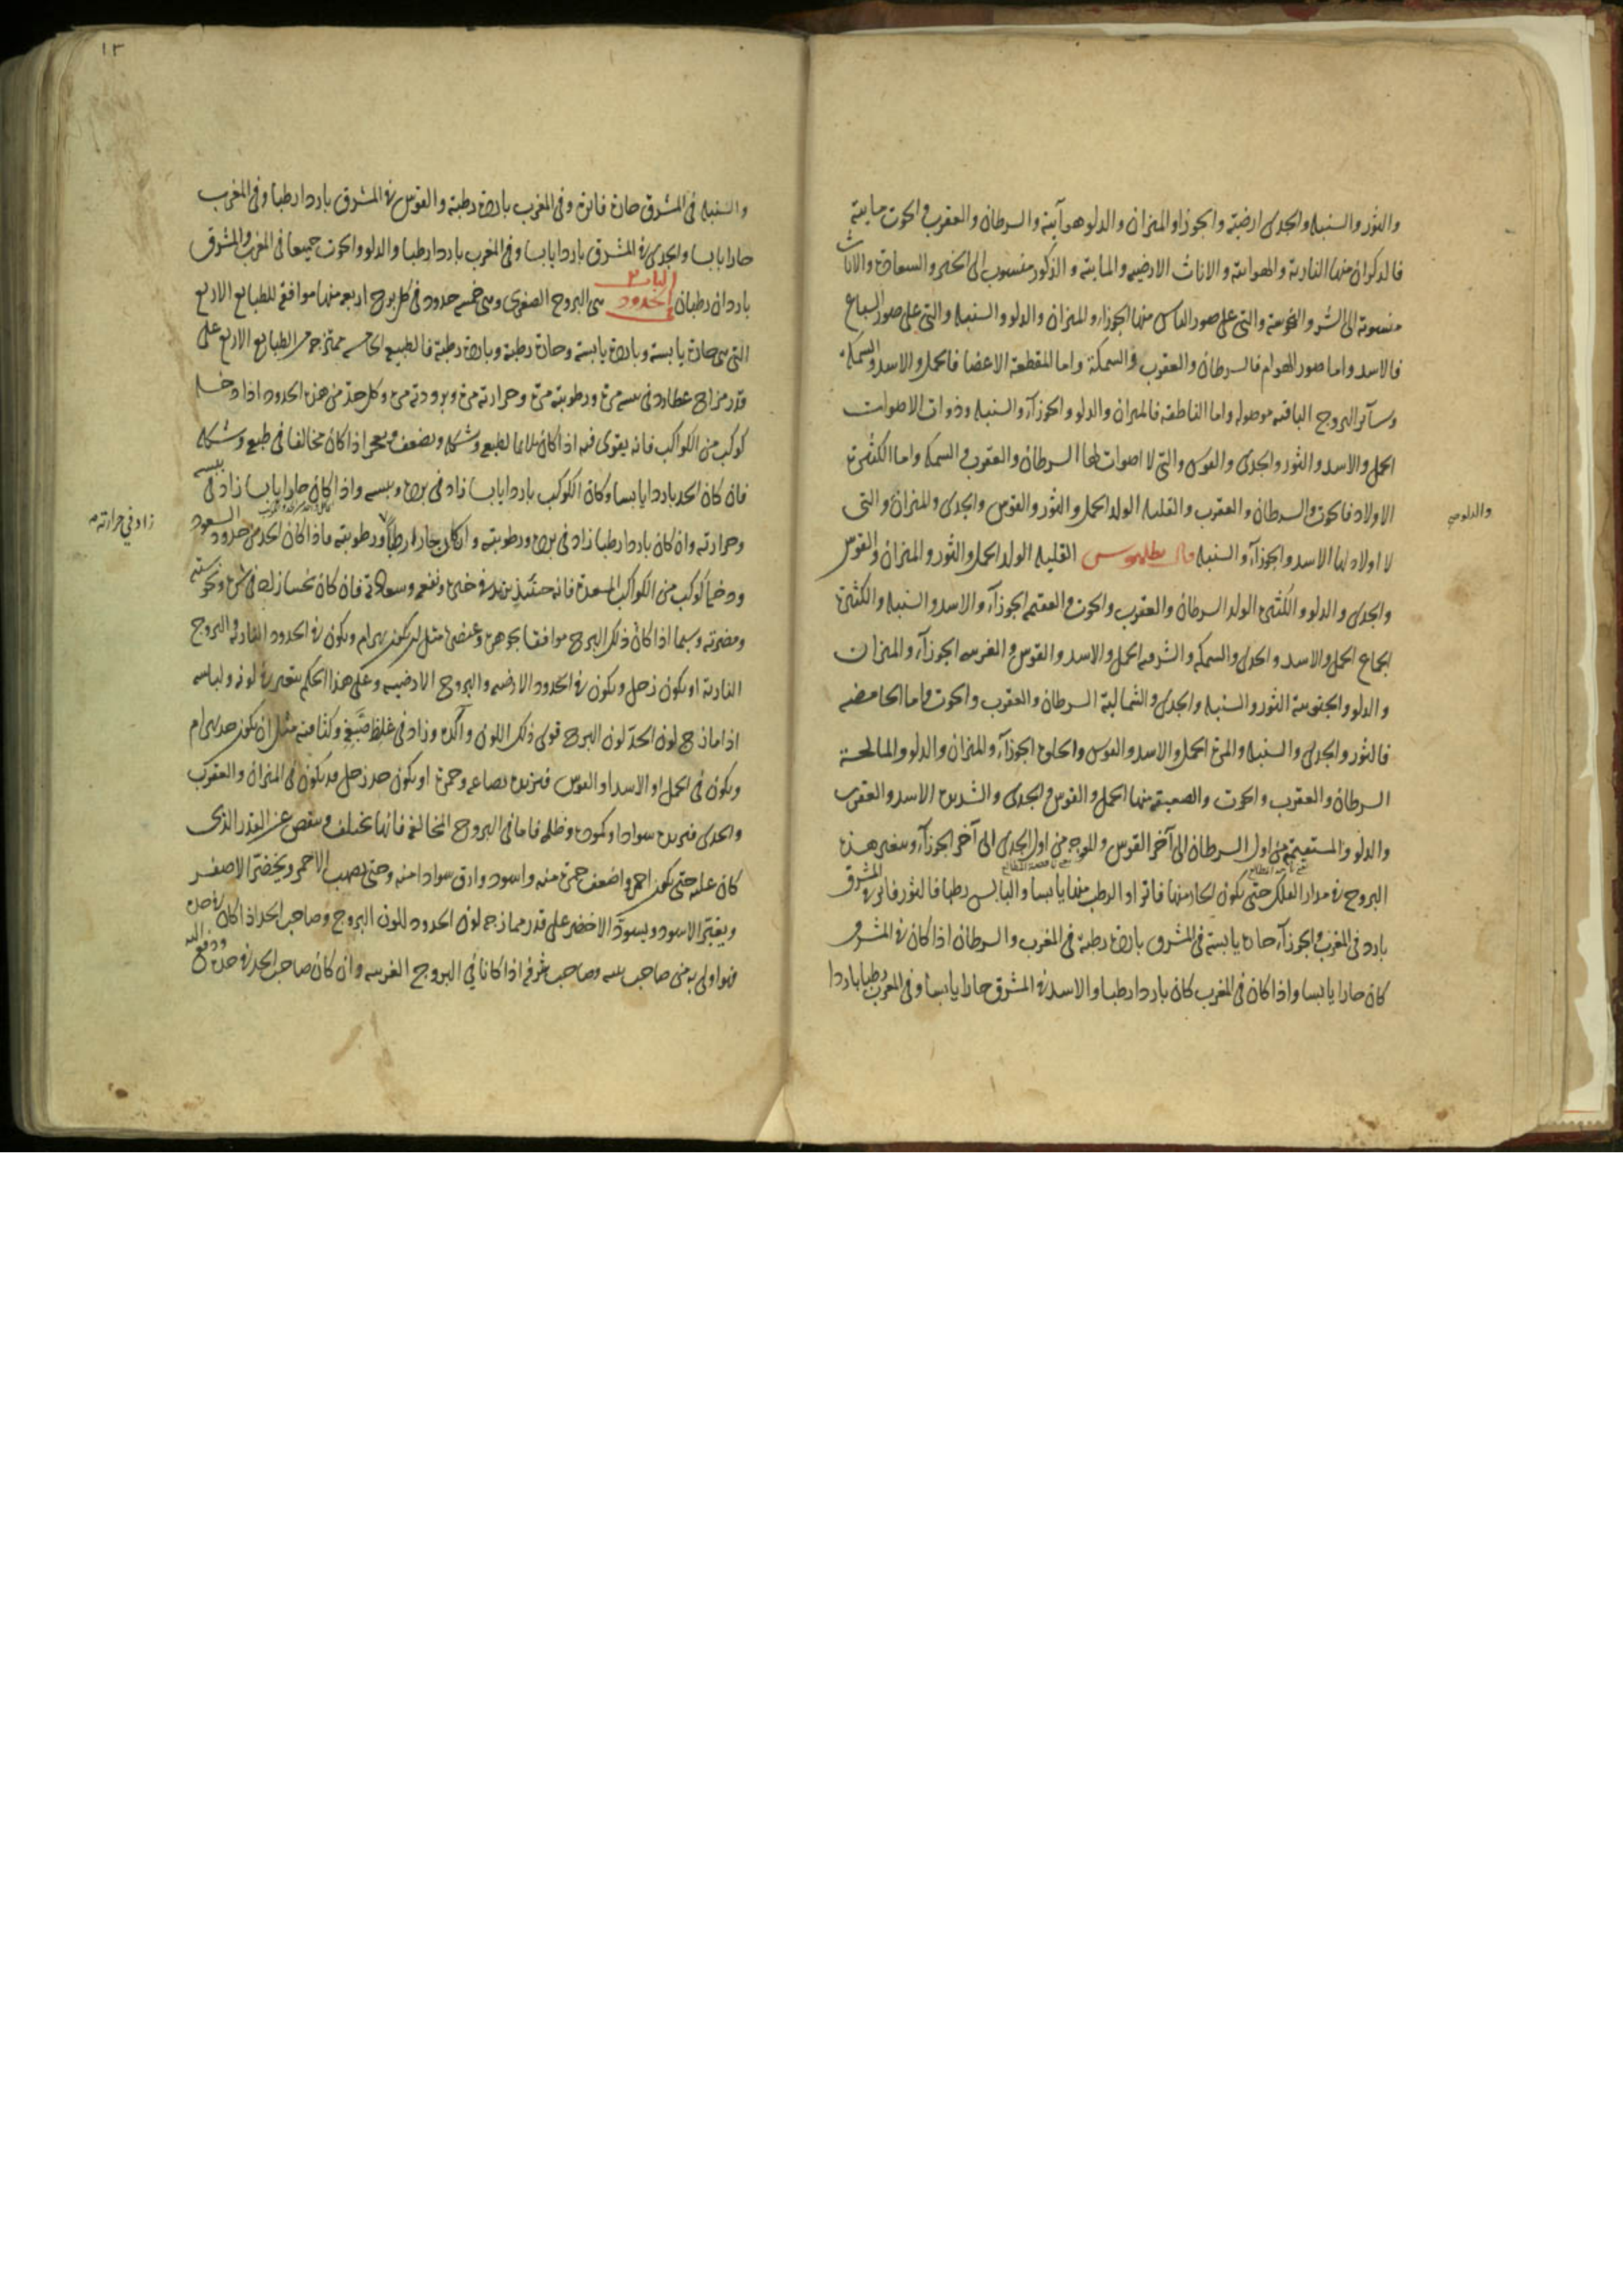 والثور والسنبله والجدى ارضية والجوزا والميزان والدلو هوآيية والسرطان والعقرب والحوت مايية
فالذكران منها النارية والهوايية والاناث الارضيه والمايية والذكور منسوب الى الخير والسعادة والاناث
منسوبة الى الشر والنحوسة والتى على صور الناس منها الجوزاء والميزان والدلو والسنبله والتى على صور السباع
فالاسد واما صور الهوام فالسرطان والعقرب والسمكة واما المقطعة الاعضا فالحمل والاسد والسمكه
وسآئر البروج الباقيه موصوله واما الناطقه فالميزان والدلو والجوزآء والسنبله وذوات الاصوات
الحمل والاسد والثور والجدى والقوس والتى لا اصوات لها السرطان والعقرب والسمكه واما الكثيرة
الاولاد فالحوت والسرطان والعقرب والقليله الولد الحمل والثور والقوس والجدى والميزان والتى
والدلو صح
لا اولاد لها الاسد والجوزآء والسنبله قال بطلميوس القليله الولد الحمل والثور والميزان والقوس
والجدى والدلو والكثيرة الولد السرطان والعقرب والحوت والعقيم الجوزآء والاسد والسنبله والكثيرة
الجماع الحمل والاسد والجدى والسمكه والشرقيه الحمل والاسد والقوس والغربيه الجوزآء والميزان
والدلو والجنوبية الثور والسنبله والجدى والشمالية السرطان والعقرب والحوت واما الحامضه
فالثور والجدى والسنبله والمرة الحمل والاسد والقوس والحلوة الجوزآء والميزان والدلو والمالحة
السرطان والعقرب والحوت والصعبة منها الحمل والقوس والجدى والشديدة الاسد والعقرب
والدلو والمستقيمة من اول السرطان الى آخر القوس والمعوجه من اول الجدى الى آخر الجوزآء وتتغير هذه
البروج فى مدار الفلك حتى يكون الحار منها فاترا او الرطب منها يابسا واليابس رطبا فالثور فاتر فى المشرق
بارد فى المغرب والجوزآء حارة يابسة فى المشرق باردة رطبة فى المغرب والسرطان اذا كان فى المشرق
كان حارا يابسا واذا كان فى المغرب كان باردا رطبا والاسد فى المشرق حارا يابسا وفى المغرب رطبا باردا
١٣
والسنبله فى المشرق حارة فاترة وفى المغرب باردة رطبة والقوس فى المشرق باردا رطبا وفى المغرب
حارا يابسا والجدى فى المشرق باردا يابسا وفى المغرب باردا رطبا والدلو والحوت جميعا فى المغرب والمشرق
الباب ٣
باردان رطبان الحدود هى البروج الصغرى وهى خمسه حدود فى كل برج اربعه منها موافقه للطبايع الاربع
التى هى حارة يابسة وباردة يابسة وحارة رطبة وباردة رطبة فالطبيعه الخامسه ممتزجه من الطبايع الاربع على
قدر مزاج عطارد فى يبسه مرة ورطوبته مرة وحرارته مرة وبرودته مرة وكل حد من هذه الحدود اذا دخله
كوكب من الكواكب فانه يقوى فيه اذا كان ملايما لطبعه وشكله ويضعف ويعجز اذا كان مخالفا فى طبعه وشكله
فان كان الحد باردا يابسا وكان الكوكب باردا يابسا زاد فى برده ويبسه واذا كان حارا يابسا زاد فى يبسه
وحرارته وان كان باردا رطبا زاد فى برده ورطوبته وان كان حارا رطبا ورطوبته فاذا كان الحد من حدود السعود
زاد فى حرارته
ودخله كوكب من الكواكب المسعدة فانه حينئذ يزيد فى خيره ونفعه وسعادته فان كان نحسا زاد فى شره ونحوسته
ومضرته وسيما اذا كان ذلك البرج موافقا بجوهره وعنصره مثل ان يكون بهرام ويكون فى الحدود الناريه والبروج
النارية او يكون زحل ويكون فى الحدود الارضيه والبروج الارضيه وعلى هذا الحكم يتغير فى لونه ولباسه
اذا مازج لون الحد لون البرج قوى ذلك اللون واكده وزاد فى غلظ صبغه وكثافته مثل ان يكون حد بهرام
ويكون فى الحمل او الاسد او القوس فيزيده نصاعه وحمرة او يكون حد زحل فيكون فى الميزان والعقرب
والجدى فيزيده سوادا وكمودة وظلمه فاما فى البروج المخالفه فانها تختلف وينقص عن القدر الذى
كان عليه حتى يكون احمر واضعف حمرة منه واسود وارق سوادا منه وحتى يصهب الاحمر ويخضر الاصفر
ويغبر الاسود ويسود الاخضر على قدر ممازجه لون الحدود للون البروج وصاحب الحد اذا كان فى حده
فهو اولى به من صاحب بيته وصاحب شرفه اذا كانا فى البروج الغريبه وان كان صاحب الحد فى حده ودفع اليه